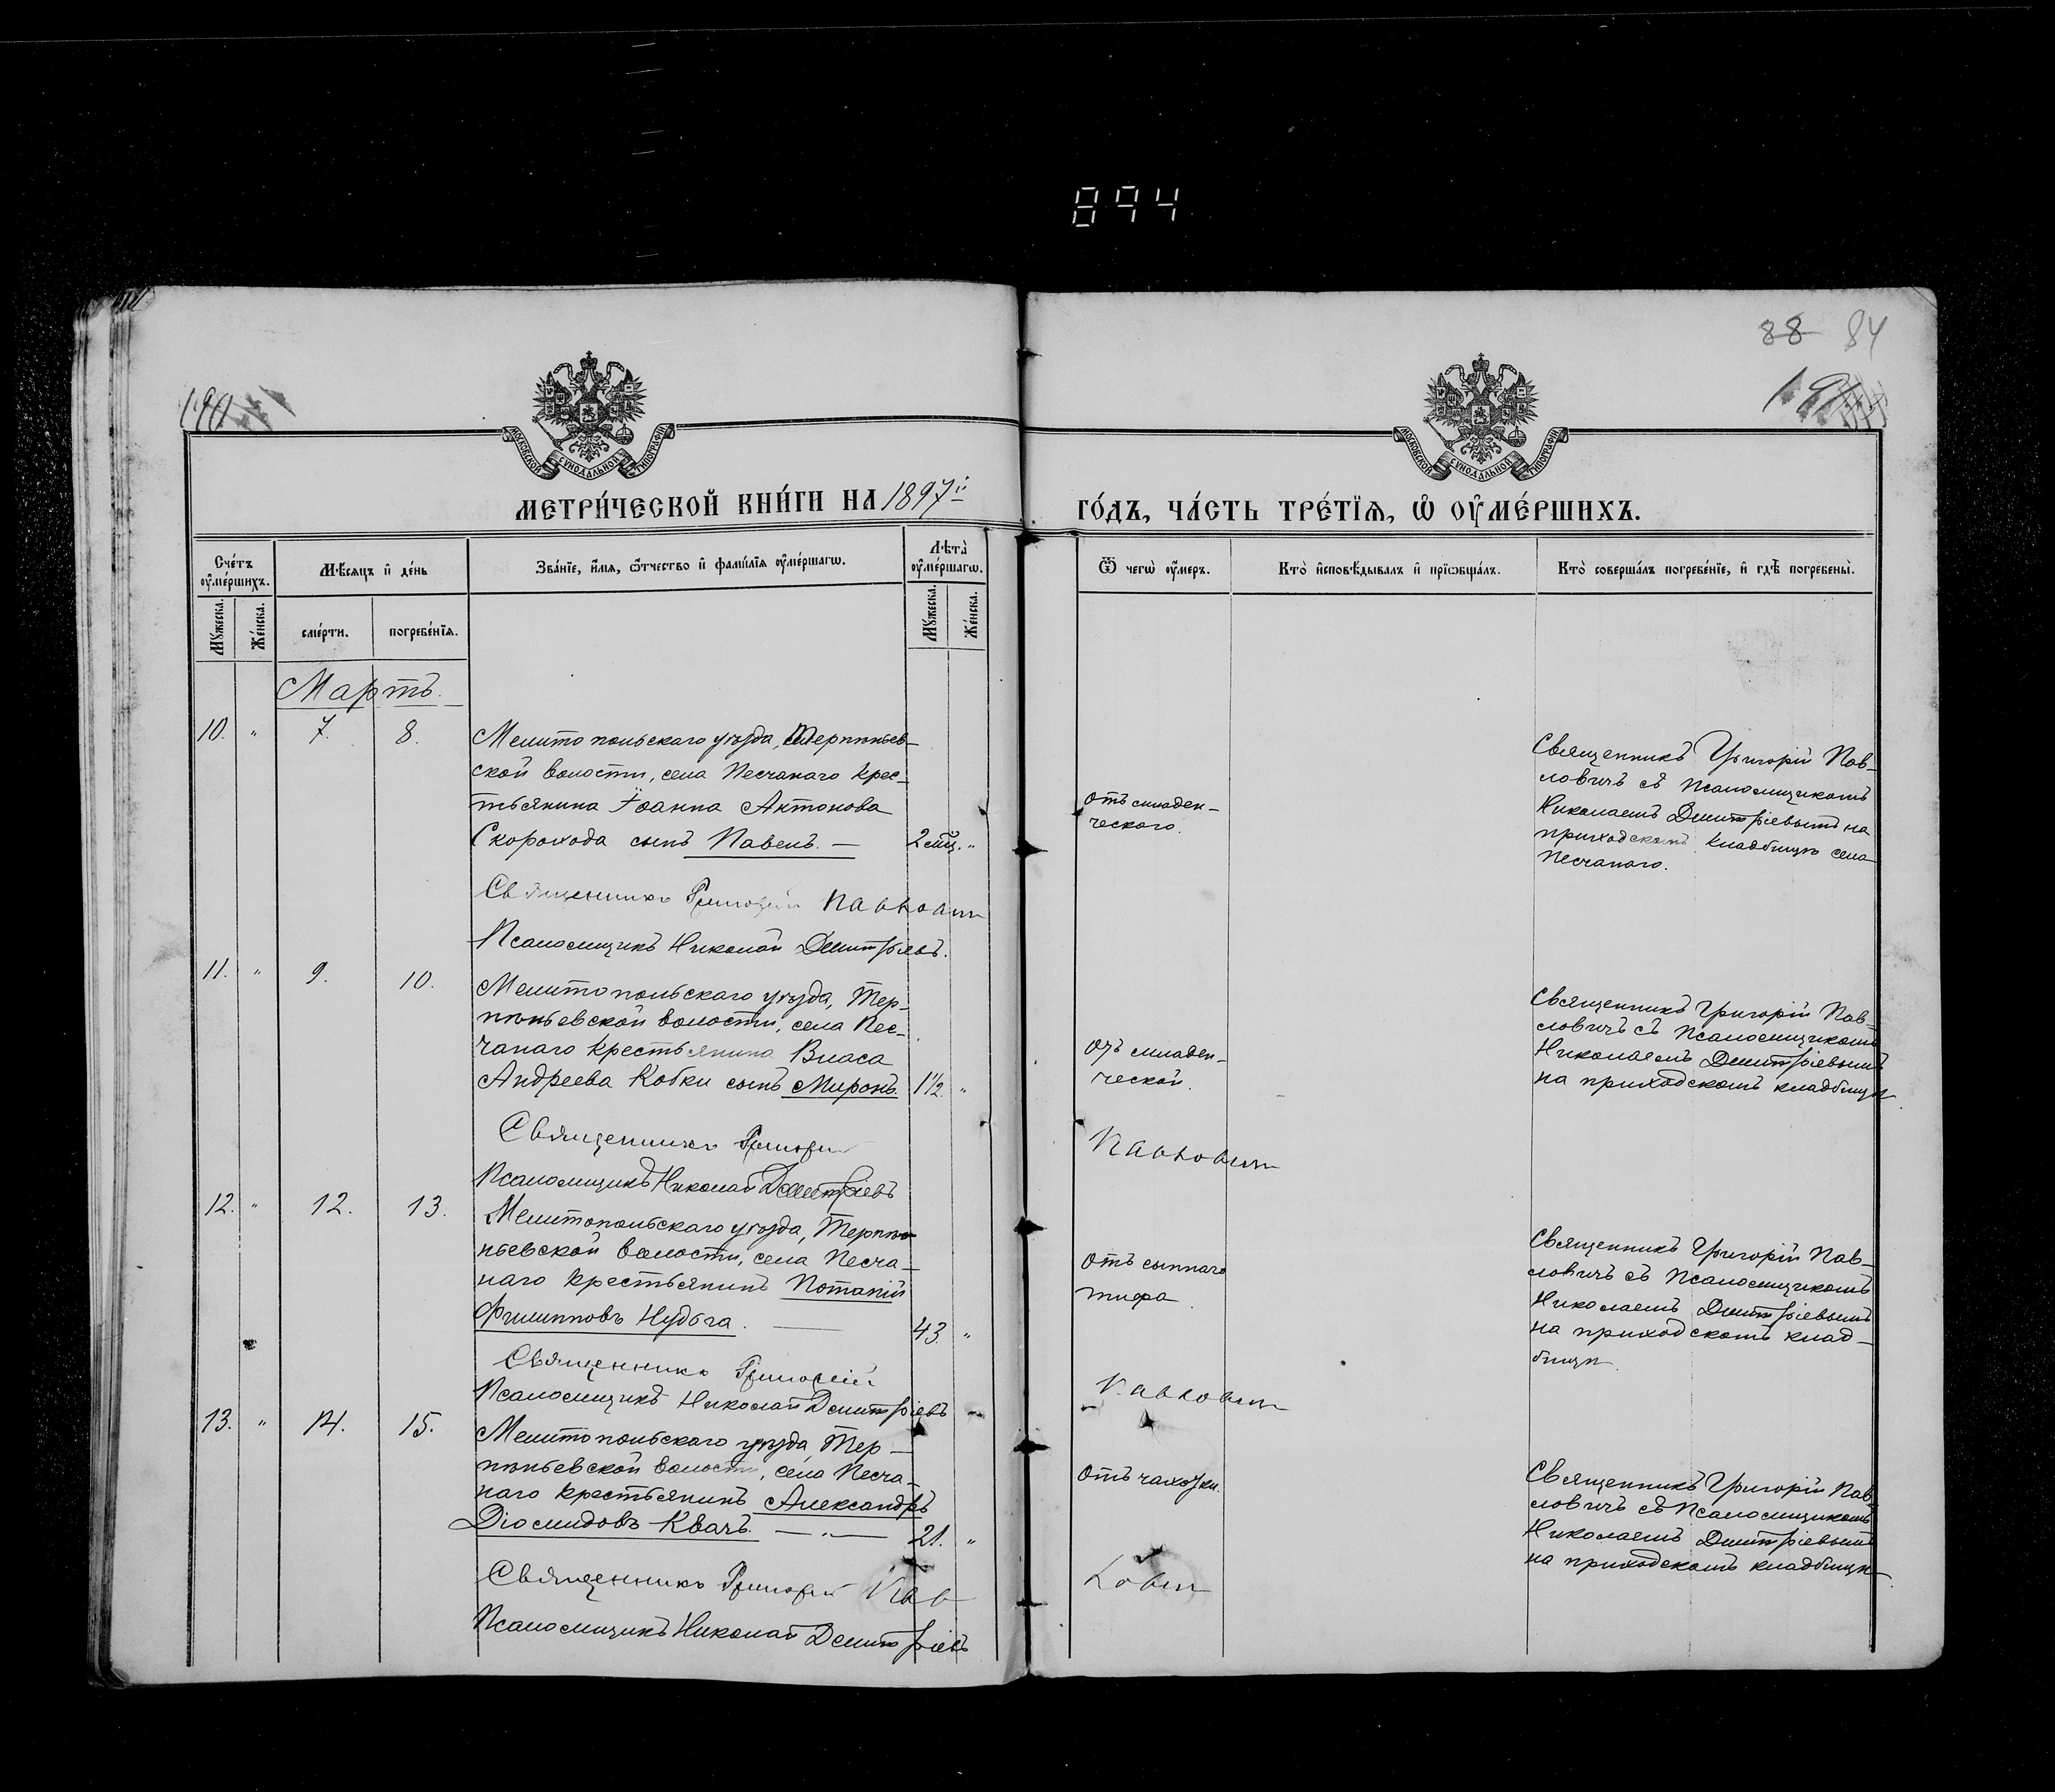 894
88 84
МОСКОВСКОЙ СѴНОДАЛЬНОЙ ТИПОГРАФІИ
МОСКОВСКОЙ СѴНОДАЛЬНОЙ ТИПОГРАФІИ
МЕТРИ́ЧЕСКОЙ КНИ́ГИ НА 1897й
ГО́ДЪ, ЧА́СТЬ ТРЕ́ТЇѦ, Ѡ҆ ОУ҆МЕ́РШИХЪ.
Сче́тъ оу҆ме́ршихъ.
Мѣ́сяцъ и҆ де́нь
Зва́нїе, и҆́мѧ, ѻ҆́тчество и҆ фами́лїѧ оу҆ме́ршагѡ.
Лѣта̀ оу҆ме́ршагѡ.
Ѿ чегѡ̀ оу҆́меръ.
Кто̀ и҆сповѣ́дывалъ и҆ прїѡбща́лъ.
Кто̀ соверша́лъ погребе́нїе, и҆ гдѣ̀ погребены̀.
Мꙋ́жеска.
Же́нска.
сме́рти.
погребе́нїѧ.
Мꙋ́жеска.
Же́нска.
Мартъ.
10. " 7. 8.
Мелитопольскаго уѣзда, Терпѣньев-
ской волости, села Песчанаго крес-
тьянина Іоанна Антонова
Скорохода сынъ Павелъ. — 2 мц. "
отъ младен-
ческаго.
Священникъ Григорій Пав-
ловичъ съ Псаломщикомъ
Николаемъ Дмитріевымъ на
приходскомъ кладбищѣ села
Песчанаго.
Священникъ Григорій Павловичъ
Псаломщикъ Николай Дмитріевъ.
11. " 9. 10.
Мелитопольскаго уѣзда, Тер-
пѣньевской волости, села Пес-
чанаго крестьянина Власа
Андреева Кобки сынъ Миронъ. 1½. "
отъ младен-
ческой.
Священникъ Григорій Пав-
ловичъ съ Псаломщикомъ
Николаемъ Дмитріевымъ
на приходскомъ кладбищѣ.
Священникъ Григорій Павловичъ
Псаломщикъ Николай Дмитріевъ
12. " 12. 13.
Мелитопольскаго уѣзда, Терпѣ-
ньевской волости, села Песча-
наго крестьянинъ Потапій
Филипповъ Нудьга. — 43. "
отъ сыпнаго
тифа.
Священникъ Григорій Пав-
ловичъ съ Псаломщикомъ
Николаемъ Дмитріевымъ
на приходскомъ клад-
бищѣ.
Священникъ Григорій Павловичъ
Псаломщикъ Николай Дмитріевъ
13. " 14. 15.
Мелитопольскаго уѣзда Тер-
пѣньевской волости, села Песча-
наго крестьянинъ Александръ
Діомидовъ Квачъ. — " — 21. "
отъ чахотки.
Священникъ Григорій Пав-
ловичъ съ Псаломщикомъ
Николаемъ Дмитріевымъ
на приходскомъ кладбищѣ.
Священникъ Григорій Павловичъ
Псаломщикъ Николай Дмитріевъ